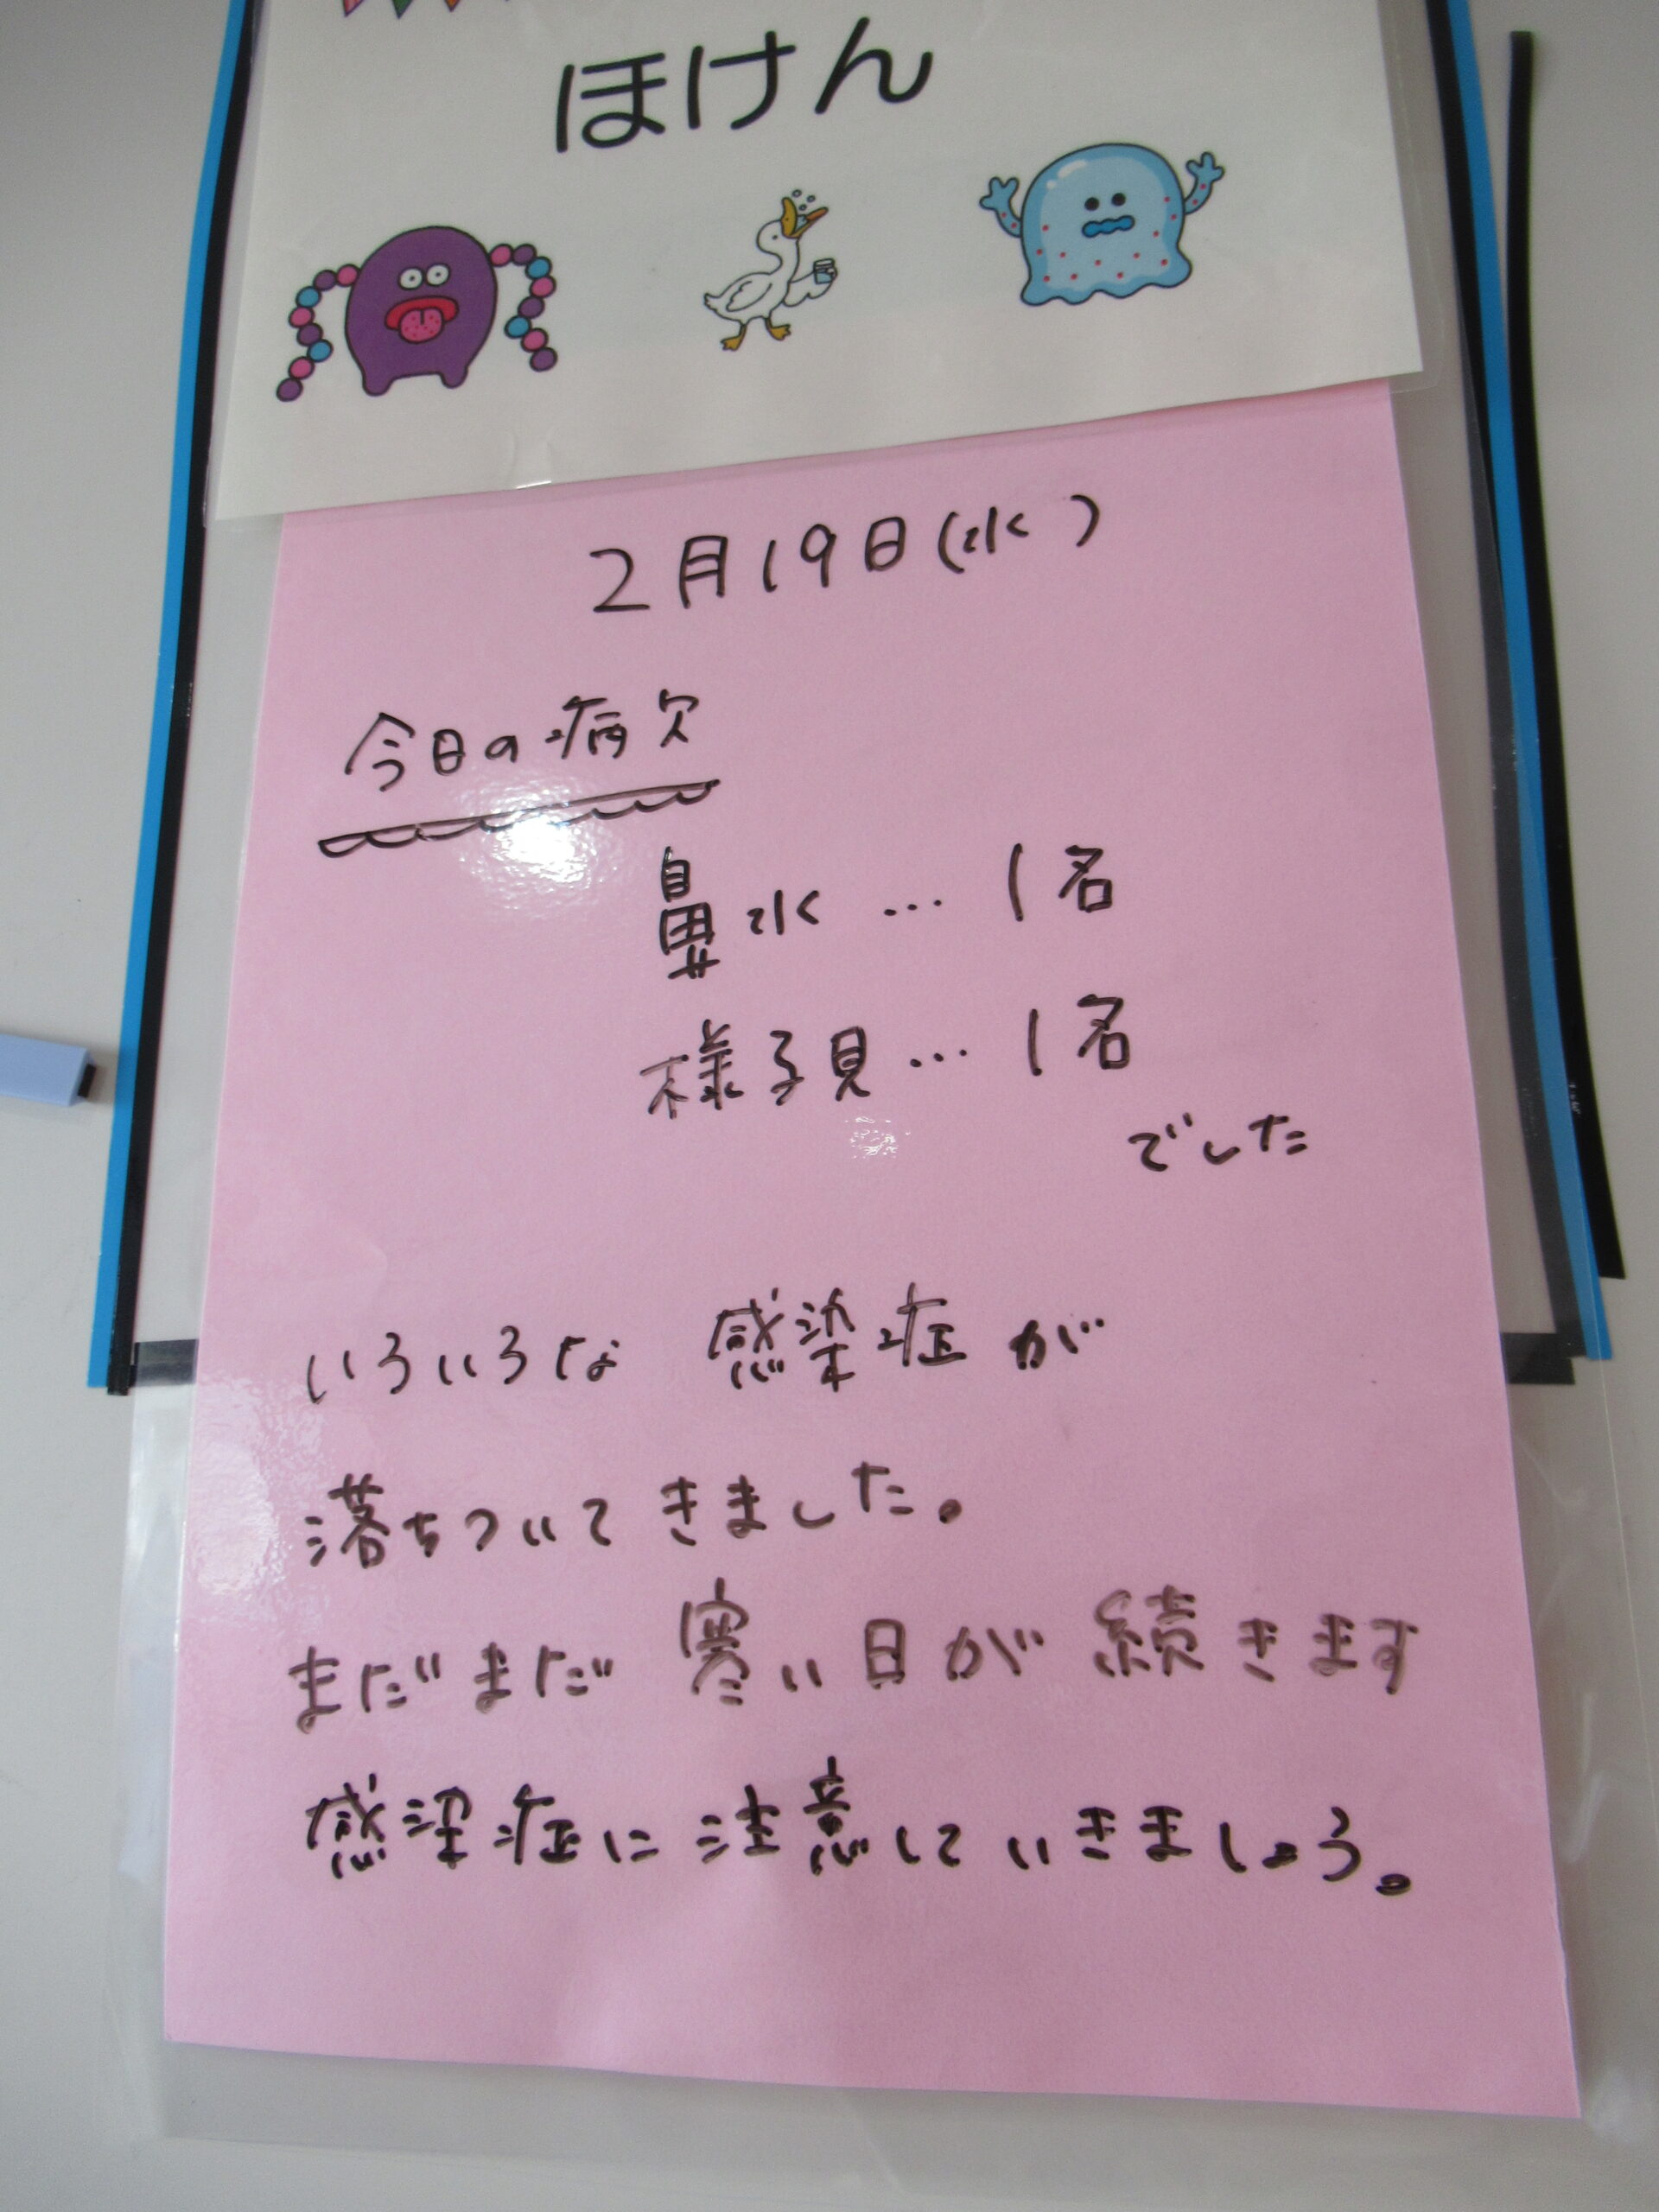 ほけん
2月19日(水)
今日の病欠
鼻水…1名
様子見…1名
でした
いろいろな 感染症が
落ちついてきました。
まだまだ 寒い日が続きます
感染症に注意していきましょう。